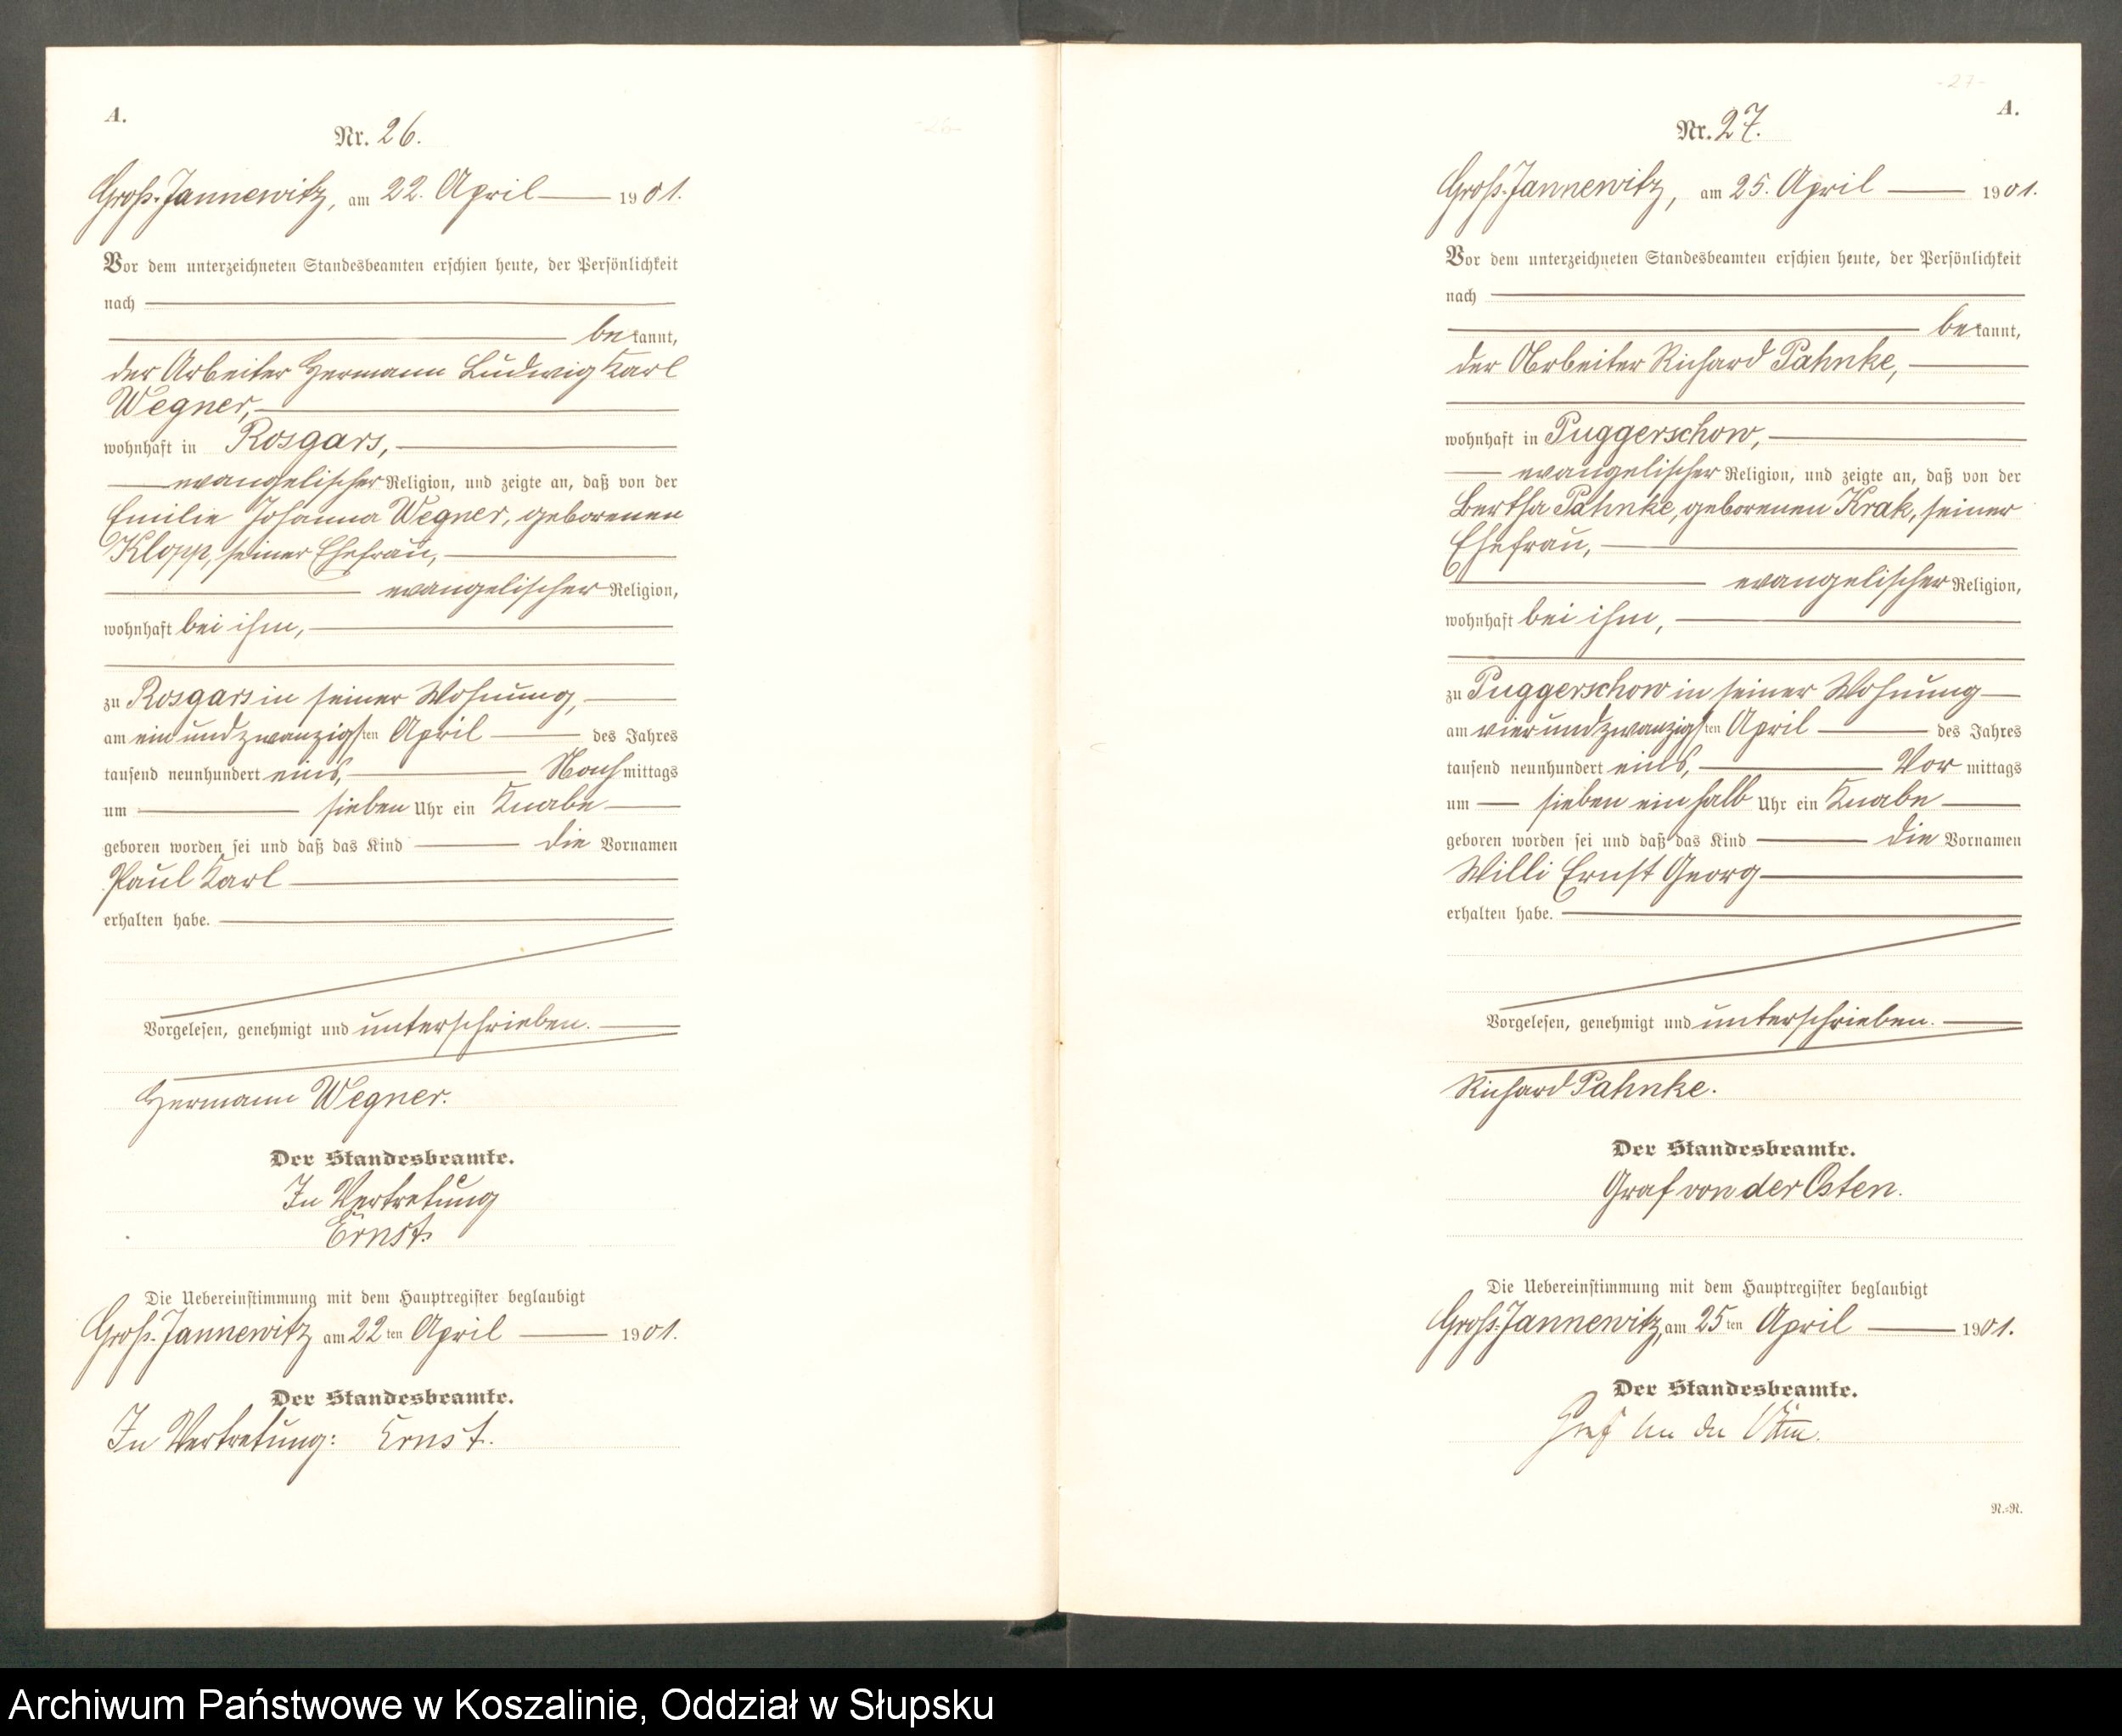 A.
Nr. 26.
-26-
Groß-Jannewitz, am 22. April 1901.
Vor dem unterzeichneten Standesbeamten erschien heute, der Persönlichkeit
nach
bekannt,
der Arbeiter Hermann Ludwig Karl
Wegner,
wohnhaft in Rosgars,
evangelischer Religion, und zeigte an, daß von der
Emilie Johanna Wegner, geborenen
Klopp, seiner Ehefrau,
evangelischer Religion,
wohnhaft bei ihm,
zu Rosgars in seiner Wohnung,
am ein und zwanzigsten April des Jahres
tausend neunhundert eins, Nachmittags
um sieben Uhr ein Knabe
geboren worden sei und daß das Kind die Vornamen
Paul Karl
erhalten habe.
Vorgelesen, genehmigt und unterschrieben.
Hermann Wegner.
Der Standesbeamte.
In Vertretung
Ernst.
Die Uebereinstimmung mit dem Hauptregister beglaubigt
Groß-Jannewitz am 22ten April 1901.
Der Standesbeamte.
In Vertretung: Ernst.
-27-
A.
Nr. 27.
Groß-Jannewitz, am 25. April 1901.
Vor dem unterzeichneten Standesbeamten erschien heute, der Persönlichkeit
nach
bekannt,
der Arbeiter Richard Pahnke,
wohnhaft in Puggerschow,
evangelischer Religion, und zeigte an, daß von der
Bertha Pahnke, geborenen Krak, seiner
Ehefrau,
evangelischer Religion,
wohnhaft bei ihm,
zu Puggerschow in seiner Wohnung
am vier und zwanzigsten April des Jahres
tausend neunhundert eins, Vormittags
um sieben ein halb Uhr ein Knabe
geboren worden sei und daß das Kind die Vornamen
Willi Ernst Georg
erhalten habe.
Vorgelesen, genehmigt und unterschrieben.
Richard Pahnke.
Der Standesbeamte.
Graf von der Osten.
Die Uebereinstimmung mit dem Hauptregister beglaubigt
Groß-Jannewitz, am 25ten April 1901.
Der Standesbeamte.
Graf von der Osten.
N.=R.
Archiwum Państwowe w Koszalinie, Oddział w Słupsku